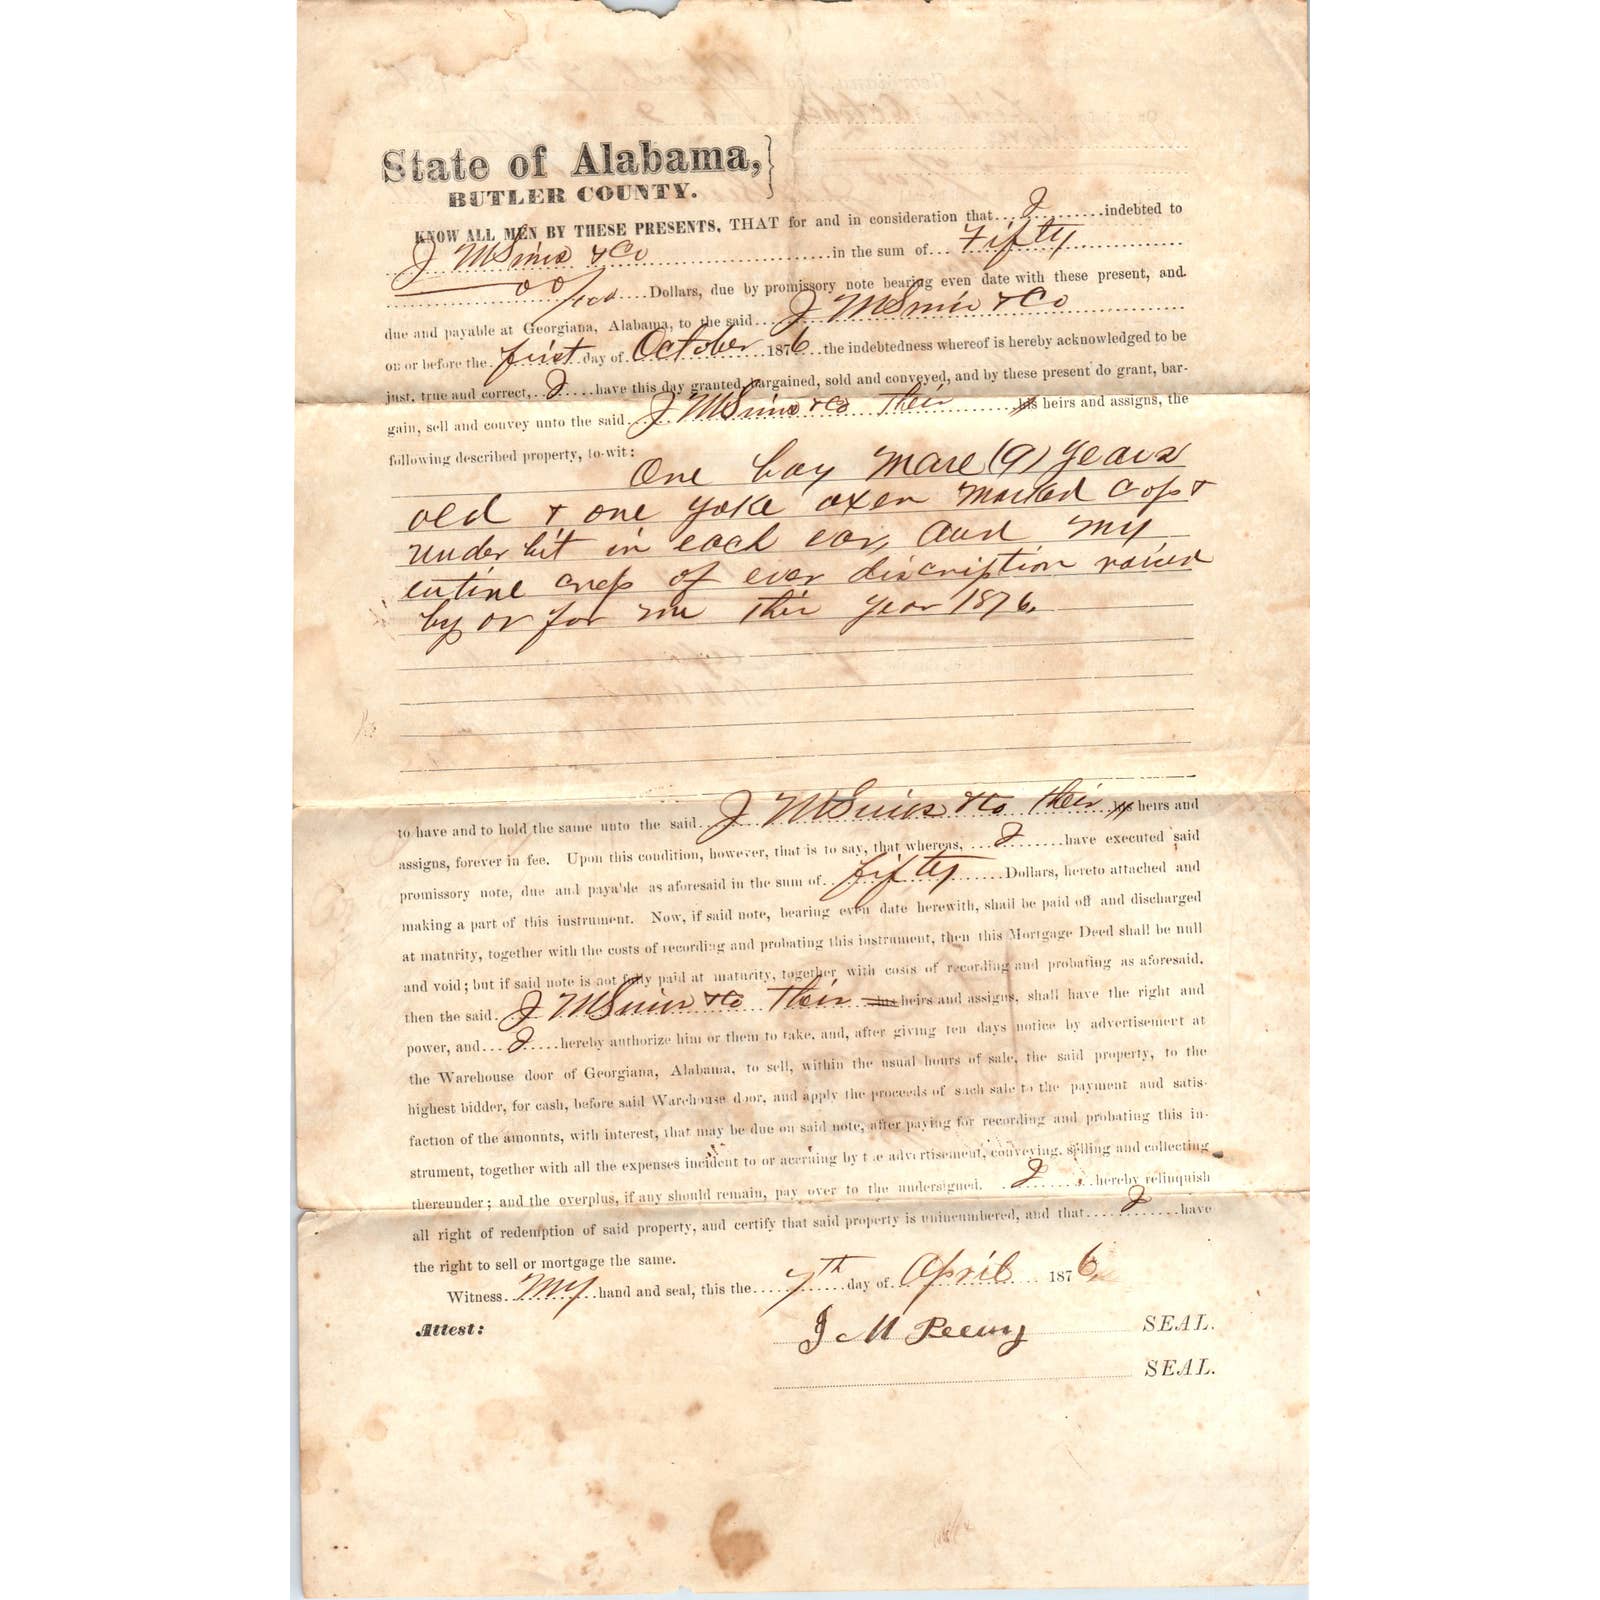 State of Alabama,
BUTLER COUNTY.
KNOW ALL MEN BY THESE PRESENTS, THAT for and in consideration that I indebted to
J M Sims & Co in the sum of Fifty
00/100 Dollars, due by promissory note bearing even date with these present, and
due and payable at Georgiana, Alabama, to the said J M Sims & Co
on or before the first day of October 1876 the indebtedness whereof is hereby acknowledged to be
just, true and correct, I have this day granted, bargained, sold and conveyed, and by these present do grant, bar-
gain, sell and convey unto the said J M Sims & Co Their his heirs and assigns, the
following described property, to-wit:
One bay Mare (9) years
old & one yoke oxen marked Crop &
under bit in each ear, and my
entire crop of ever discription raised
by or for me this year 1876.
to have and to hold the same unto the said J M Sims & Co their his heirs and
assigns, forever in fee. Upon this condition, however, that is to say, that whereas, I have executed said
promissory note, due and payable as aforesaid in the sum of fifty Dollars, hereto attached and
making a part of this instrument. Now, if said note, bearing even date herewith, shall be paid off and discharged
at maturity, together with the costs of recording and probating this instrument, then this Mortgage Deed shall be null
and void; but if said note is not fully paid at maturity, together with costs of recording and probating as aforesaid,
then the said J M Sims & Co Their his heirs and assigns, shall have the right and
power, and I hereby authorize him or them to take, and, after giving ten days notice by advertisement at
the Warehouse door of Georgiana, Alabama, to sell, within the usual hours of sale, the said property, to the
highest bidder, for cash, before said Warehouse door, and apply the proceeds of such sale to the payment and satis-
faction of the amounts, with interest, that may be due on said note, after paying for recording and probating this in-
strument, together with all the expenses incident to or accruing by the advertisement, conveying, selling and collecting
thereunder; and the overplus, if any should remain, pay over to the undersigned. I hereby relinquish
all right of redemption of said property, and certify that said property is unincumbered, and that I have
the right to sell or mortgage the same.
Witness My hand and seal, this the 7th day of April 1876
Attest:
J M SEAL.
SEAL.